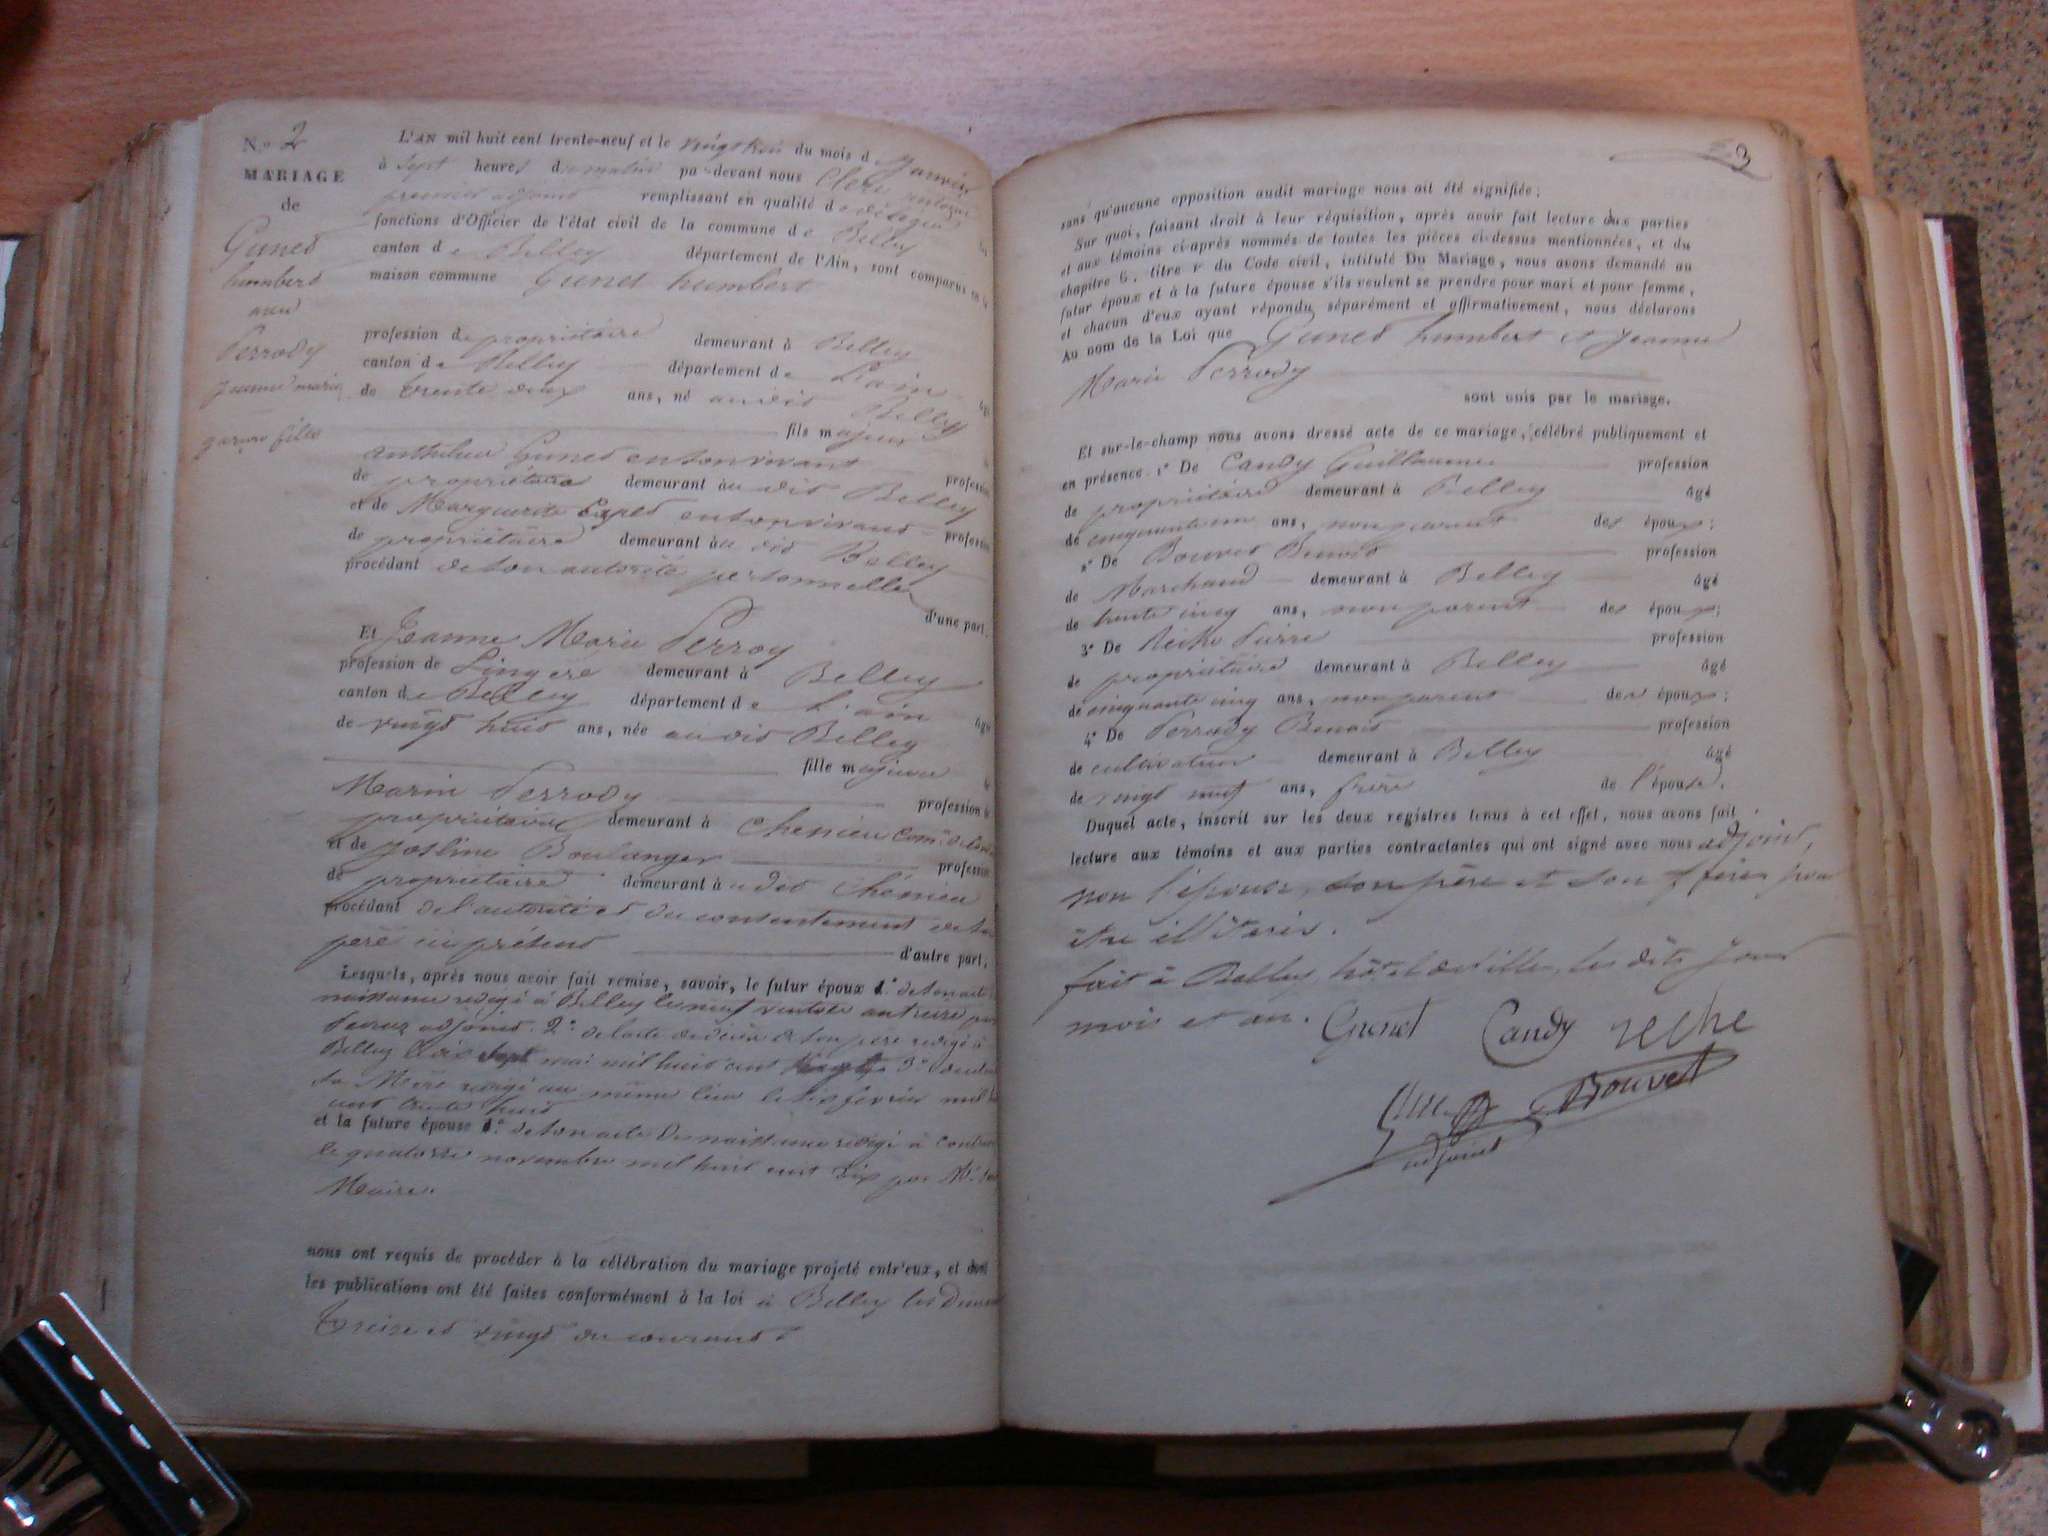 N.o 2
MARIAGE
de
Gunet
humbert
avec
Perrody
jeanne marie
garçon fille
L'AN mil huit cent trente-neuf et le vingt trois du mois d Janvier
à sept heures du matin par-devant nous Clerc
premier adjoint remplissant en qualité de délégué les
fonctions d'Officier de l'état civil de la commune de Belley
canton de Belley département de l'Ain, sont comparus en la
maison commune Gunet humbert
profession de propriétaire demeurant à Belley
canton de Belley département de L'ain âgé
de trente deux ans, né audit Belley
fils majeur
anthelme Gunet en son vivant profession
de propriétaire demeurant au dit Belley
et de Marguerite en son vivant profession
de propriétaire demeurant au dit Belley
procédant de son autorité personnelle
d'une part.
Et Jeanne Marie Perroy
profession de Lingère demeurant à Belley
canton de Belley département de L'ain âgée
de vingt huit ans, née au dit Belley
fille majeure de
Marin Perrody profession de
propriétaire demeurant à Chenieu Com.
et de Josline Boulanger profession
de propriétaire demeurant audit Chénieu
procédant de l'autorité et du consentement de son
père ici présent d'autre part,
Lesquels, après nous avoir fait remise, savoir, le futur époux 1.o de son acte de
naissance redigé à Belley le neuf ventose an treize par
adjoint. 2.o de l'acte de décès de son père redigé à
Belley mai mil huit cent 3.o
sa Mère redigé au même lieu le février mil huit
cent trente huit
et la future épouse 1.o de son acte de naissance redigé à
le quatorze novembre mil huit cent dix par Mr.
Maire.
nous ont requis de procéder à la célébration du mariage projeté entr'eux, et dont
les publications ont été faites conformément à la loi à Belley les Dimanches
Treize et vingt du courant
3
sans qu'aucune opposition audit mariage nous ait été signifiée;
Sur quoi, faisant droit à leur réquisition, après avoir fait lecture aux parties
et aux témoins ci-après nommés de toutes les pièces ci-dessus mentionnées, et du
chapitre 6, titre v du Code civil, intitulé Du Mariage, nous avons demandé au
futur époux et à la future épouse s'ils veulent se prendre pour mari et pour femme,
et chacun d'eux ayant répondu séparément et affirmativement, nous déclarons
Au nom de la Loi que Gunet humbert et jeanne
Marie Perrody
sont unis par le mariage.
Et sur-le-champ nous avons dressé acte de ce mariage, célébré publiquement et
en présence. 1.o De Candy Guillaume profession
de propriétaire demeurant à Belley âgé
de cinquante un ans, non parent des époux;
2.o De Bouvet Benoit profession
de Marchand demeurant à Belley âgé
de trente cinq ans, non parent des époux;
3.o De Reche Pierre profession
de propriétaire demeurant à Belley âgé
de cinquante cinq ans, non parent des époux;
4.o De Perrody Benoit profession
de cultivateur demeurant à Belley âgé
de vingt neuf ans, frère de l'épouse.
Duquel acte, inscrit sur les deux registres tenus à cet effet, nous avons fait
lecture aux témoins et aux parties contractantes qui ont signé avec nous adjoint,
non l'épouse, son père et son frère pour
être illitérés.
fait à Belley, hôtel de ville, les dits jour
mois et an. Gunet Candy reche
Bouvet
adjoint